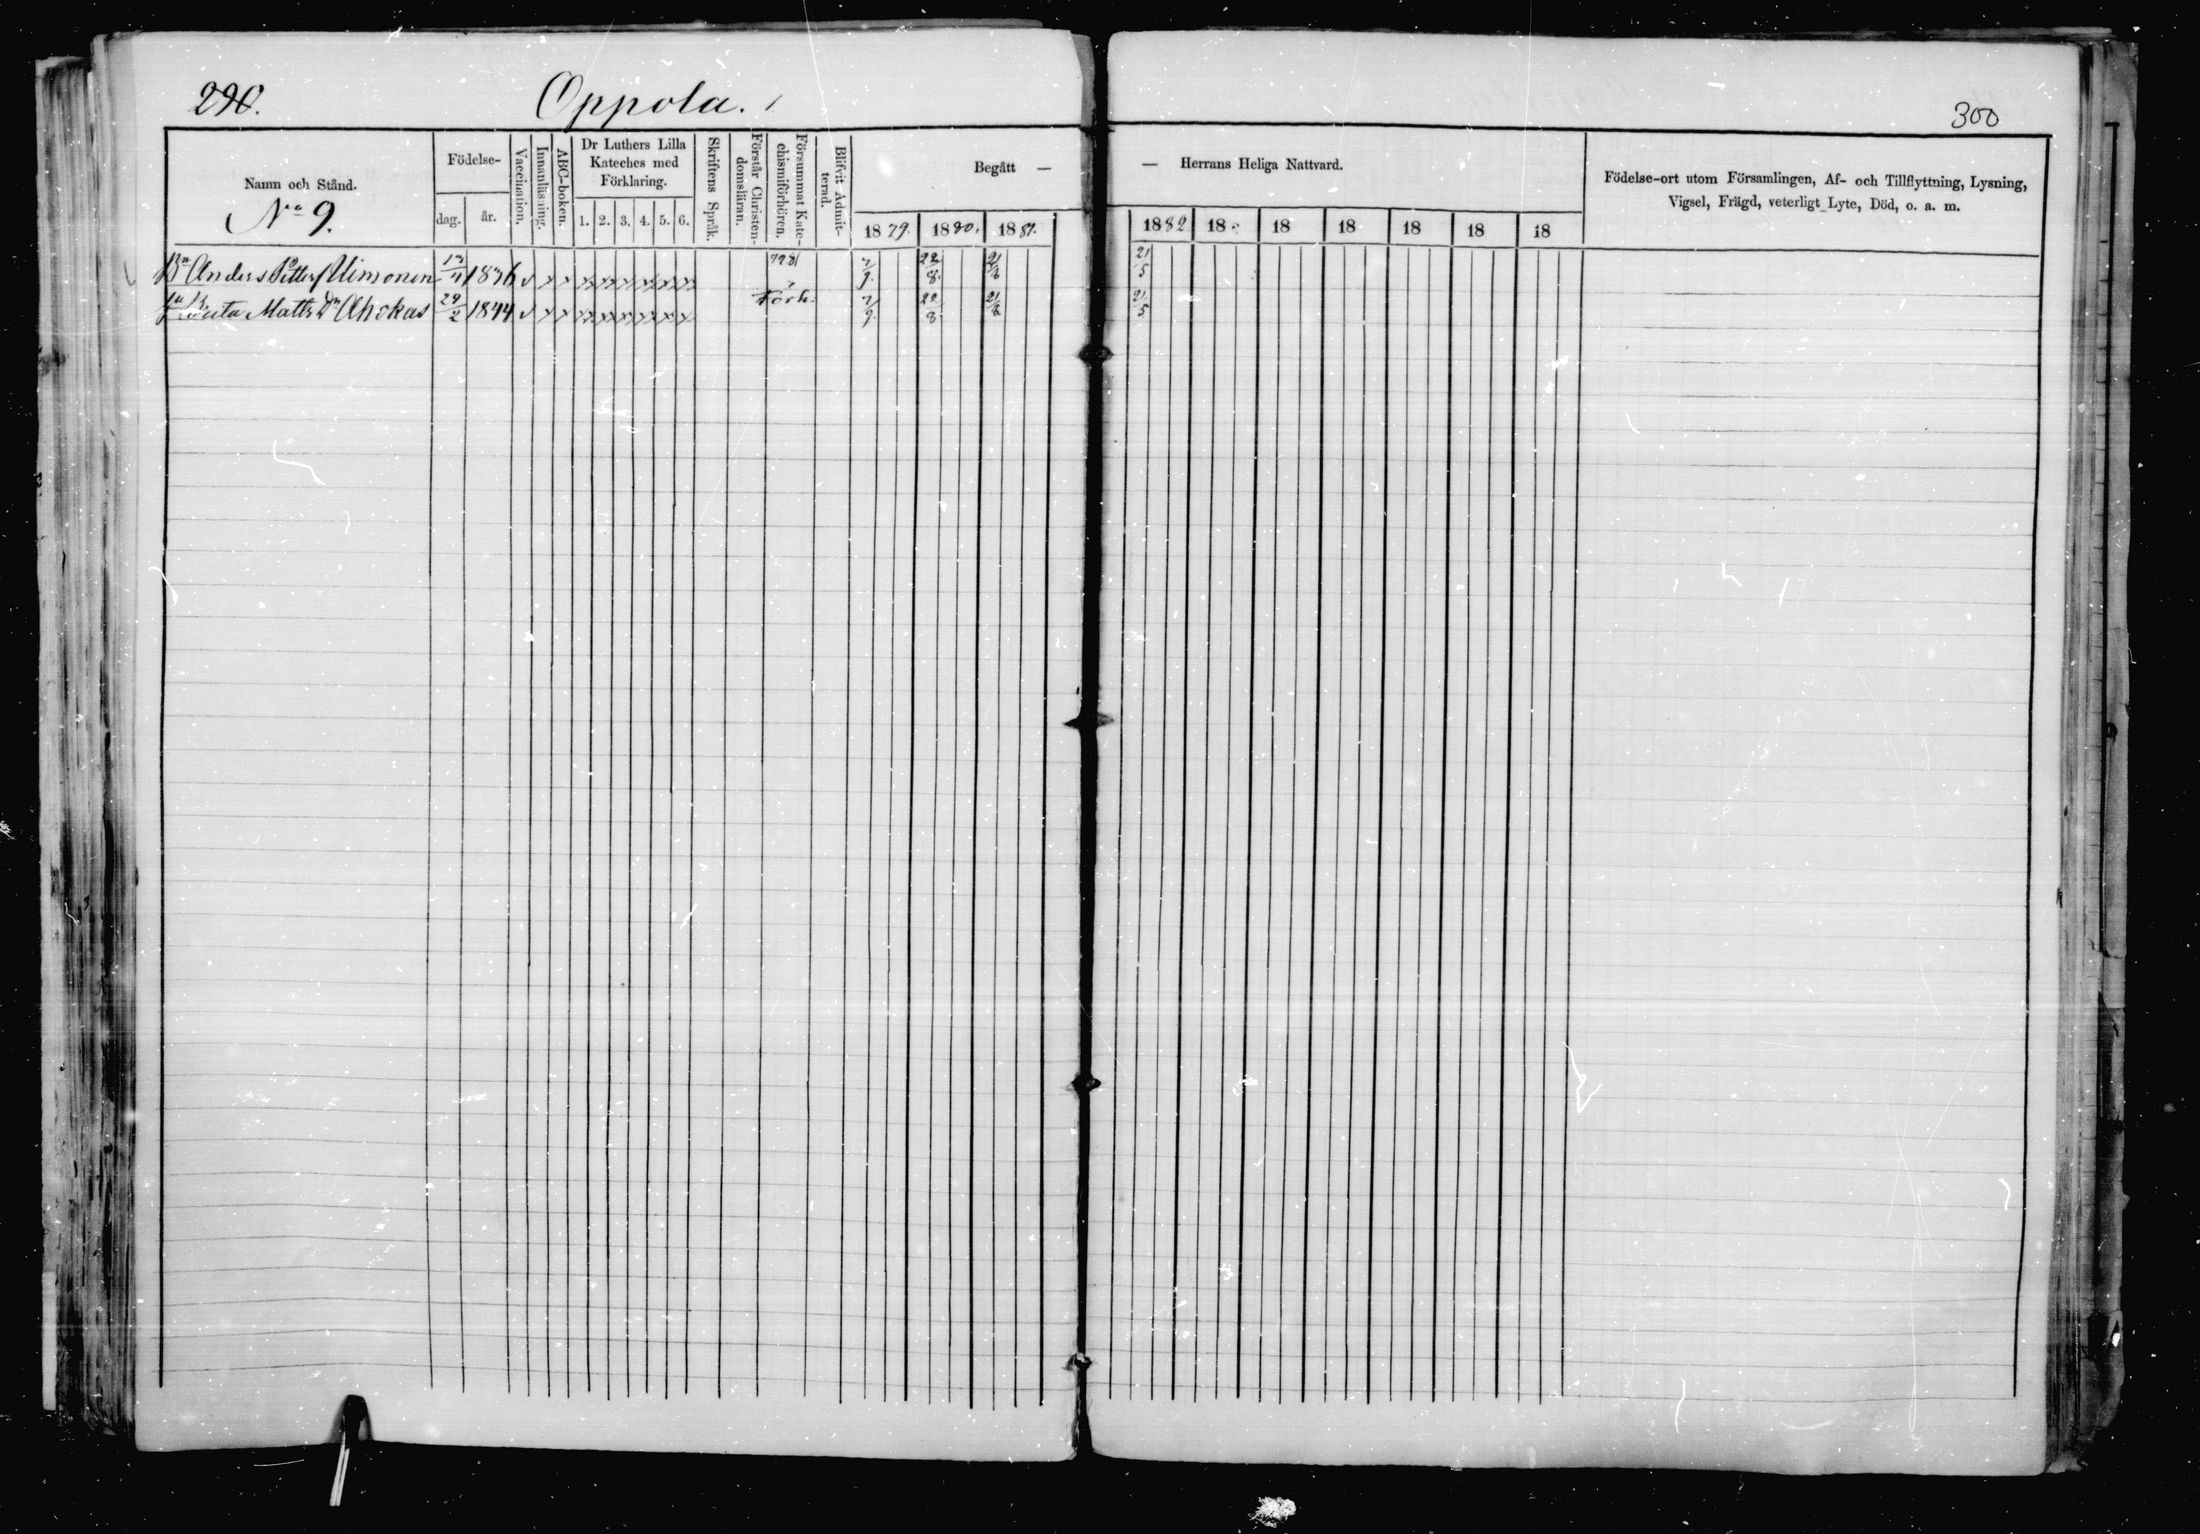 290. Oppola. 300
Namn och Stånd. Födelse- Vaccination. Innanläsning. ABC-boken. Dr Luthers Lilla Kateches med Förklaring. Skriftens Språk. Förstår Christen-domsläran. Försummat Kate-chismiförhören. Blifvit Admit-terad. Begått — — Herrans Heliga Nattvard. Födelse-ort utom Församlingen, Af- och Tillflyttning, Lysning, Vigsel, Frägd, veterligt Lyte, Död, o. a. m.
No 9. dag. år. 1. 2. 3. 4. 5. 6. 1879. 1880. 1881. 1882 18 18 18 18 18 18
Anders Petter 13/11 1836 v x x x x x x x x 7/9. 22/8. 21/8 21/5
Matts Dr Ahokas 29/2 1844 v x x x x x x x x Förh. 7/9. 22/8 21/8 21/5